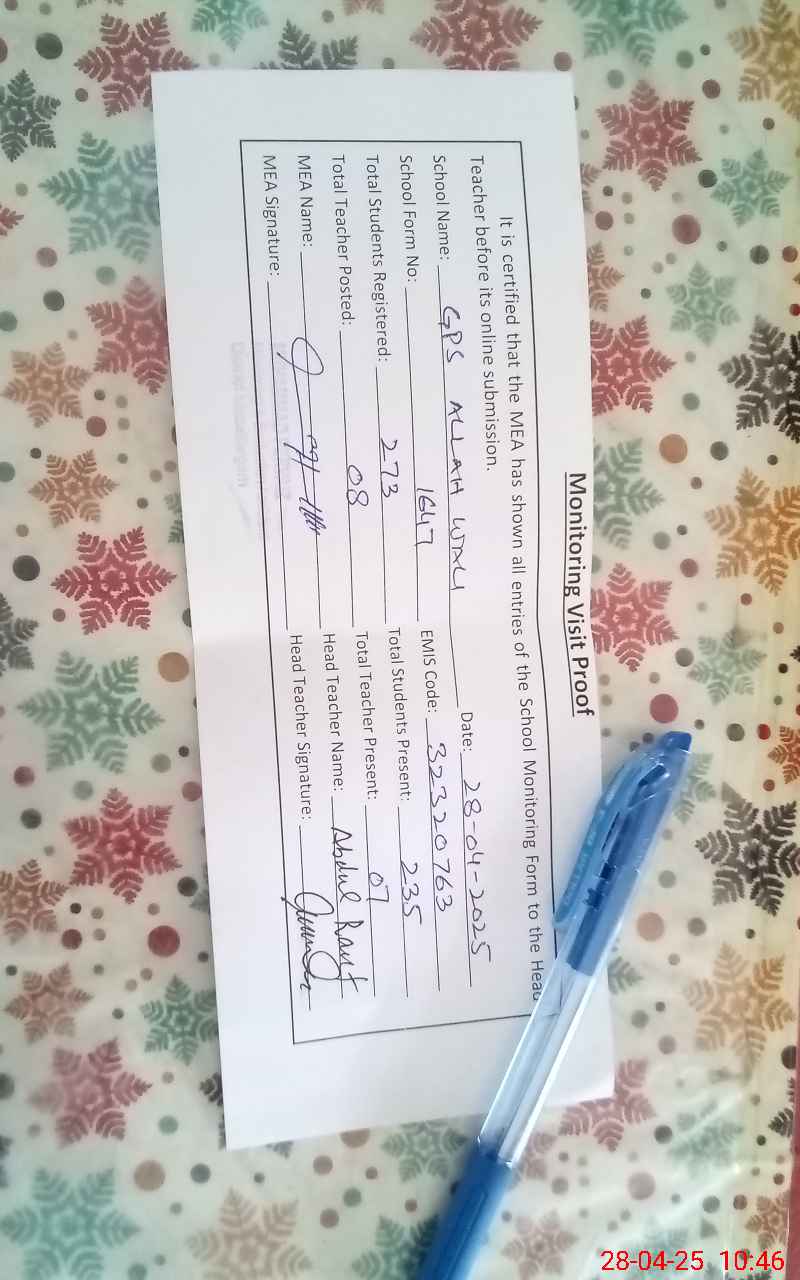 Monitoring Visit Proof
It is certified that the MEA has shown all entries of the School Monitoring Form to the Head
Teacher before its online submission.
School Name: GPS ALLAH WALI Date: 28-04-2025
School Form No: 1647 EMIS Code: 32320763
Total Students Registered: 273 Total Students Present: 235
Total Teacher Posted: 08 Total Teacher Present: 07
MEA Name: Head Teacher Name: Abdul Rauf
MEA Signature: Head Teacher Signature:
28-04-25 10:46